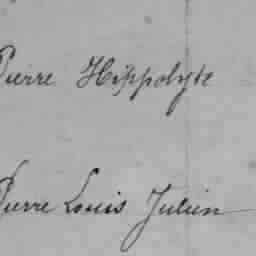 Pierre Hippolyte
Pierre Louis Julien